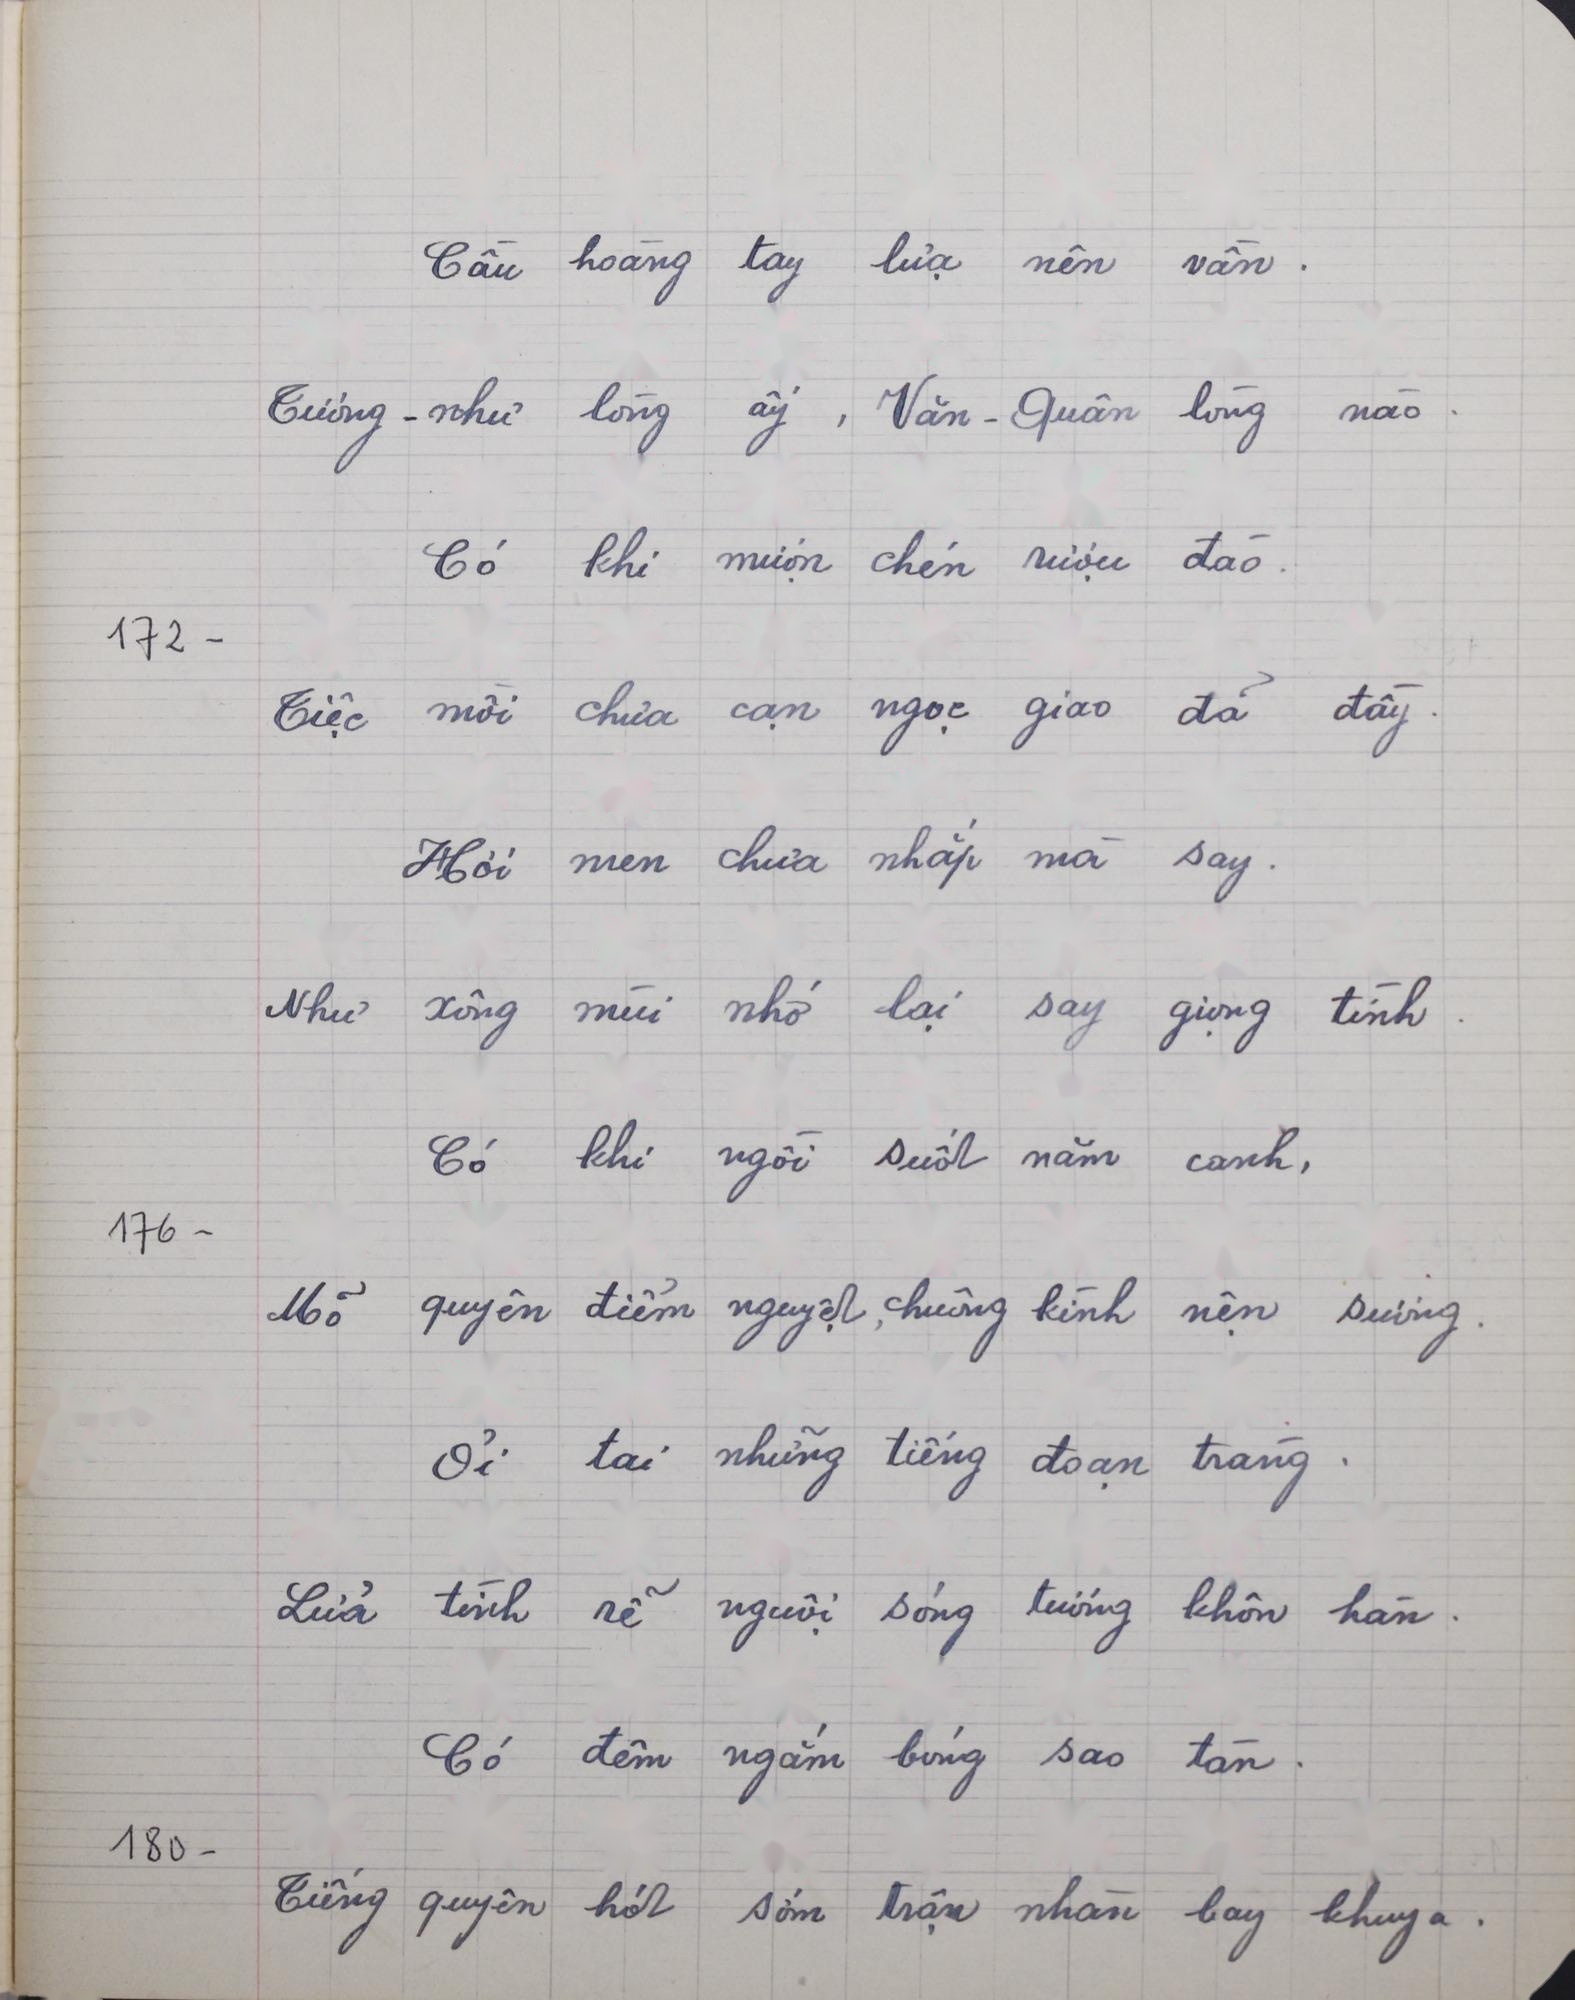 Cầu hoàng tay lựa nên vần.
Tương-như lòng ấy, Văn-Quân lòng nào.
Có khi mượn chén rượu đào.
172-
Tiệc mồi chưa cạn ngọc giao đã đầy.
Hơi men chưa nhấp mà say.
Như xông mùi nhớ lại say giọng tình.
Có khi ngồi suốt năm canh,
176-
Mõ quyên điểm nguyệt, chuông kình nện sương.
Ơi tai những tiếng đoạn tràng.
Lửa tình rễ nguội sóng tương khôn hàn.
Có đêm ngắm bóng sao tàn.
180-
Tiếng quyên hót sớm trận nhàn bay khuya.